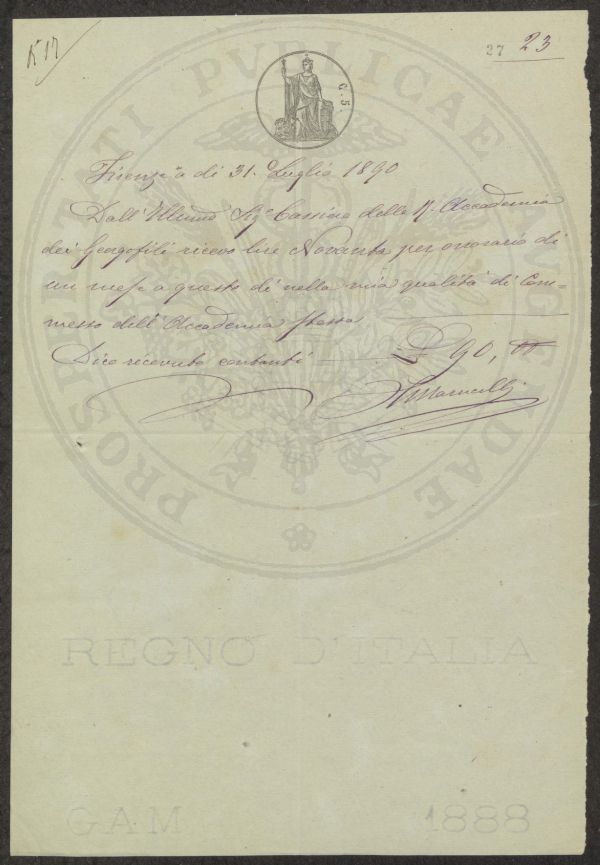 27 23
C. 5.
Firenze a di 31. Luglio 1890
Dall' Illmo Sigr Cassiere della R. Accademia
dei Georgofili ricevo lire Novanta per onorario di
un mese a questo dì nella mia qualità di Com-
messo dell' Accademia stessa
Dico ricevute contanti £ 90,
PROSPERITATI PVBLICAE AVGENDAE
REGNO D'ITALIA
GAM 1888